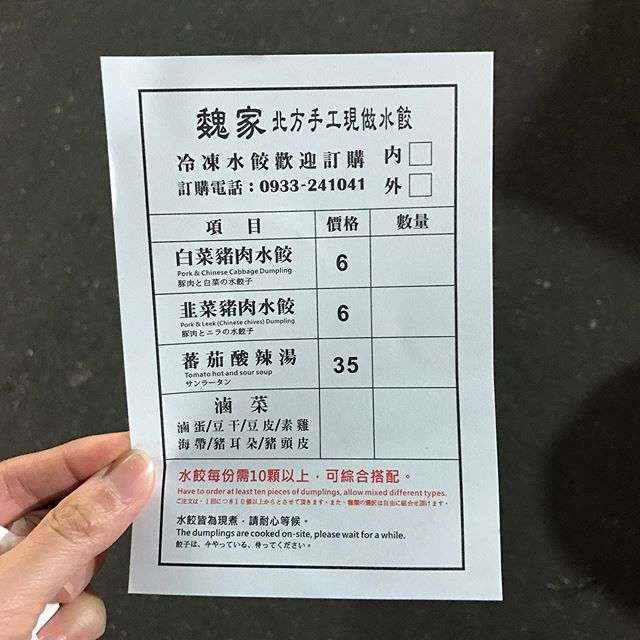 魏家 北方手工現做水餃
冷凍水餃歡迎訂購 內
訂購電話：0933-241041 外
項目 價格 數量
白菜豬肉水餃 6
Pork & Chinese Cabbage Dumpling
豚肉と白菜の水餃子
韭菜豬肉水餃 6
Pork & Leek (Chinese chives) Dumpling
豚肉とニラの水餃子
蕃茄酸辣湯 35
Tomato hot and sour soup
サンラータン
滷菜
滷蛋/豆干/豆皮/素雞
海帶/豬耳朵/豬頭皮
水餃每份需10顆以上，可綜合搭配。
Have to order at least ten pieces of dumplings, allow mixed different types.
ご注文は、1回につき10個以上からとさせて頂きます。また、種類の選択は自由に組合せ頂けます。
水餃皆為現煮，請耐心等候。
The dumplings are cooked on-site, please wait for a while.
餃子は、今やっている、待ってください。